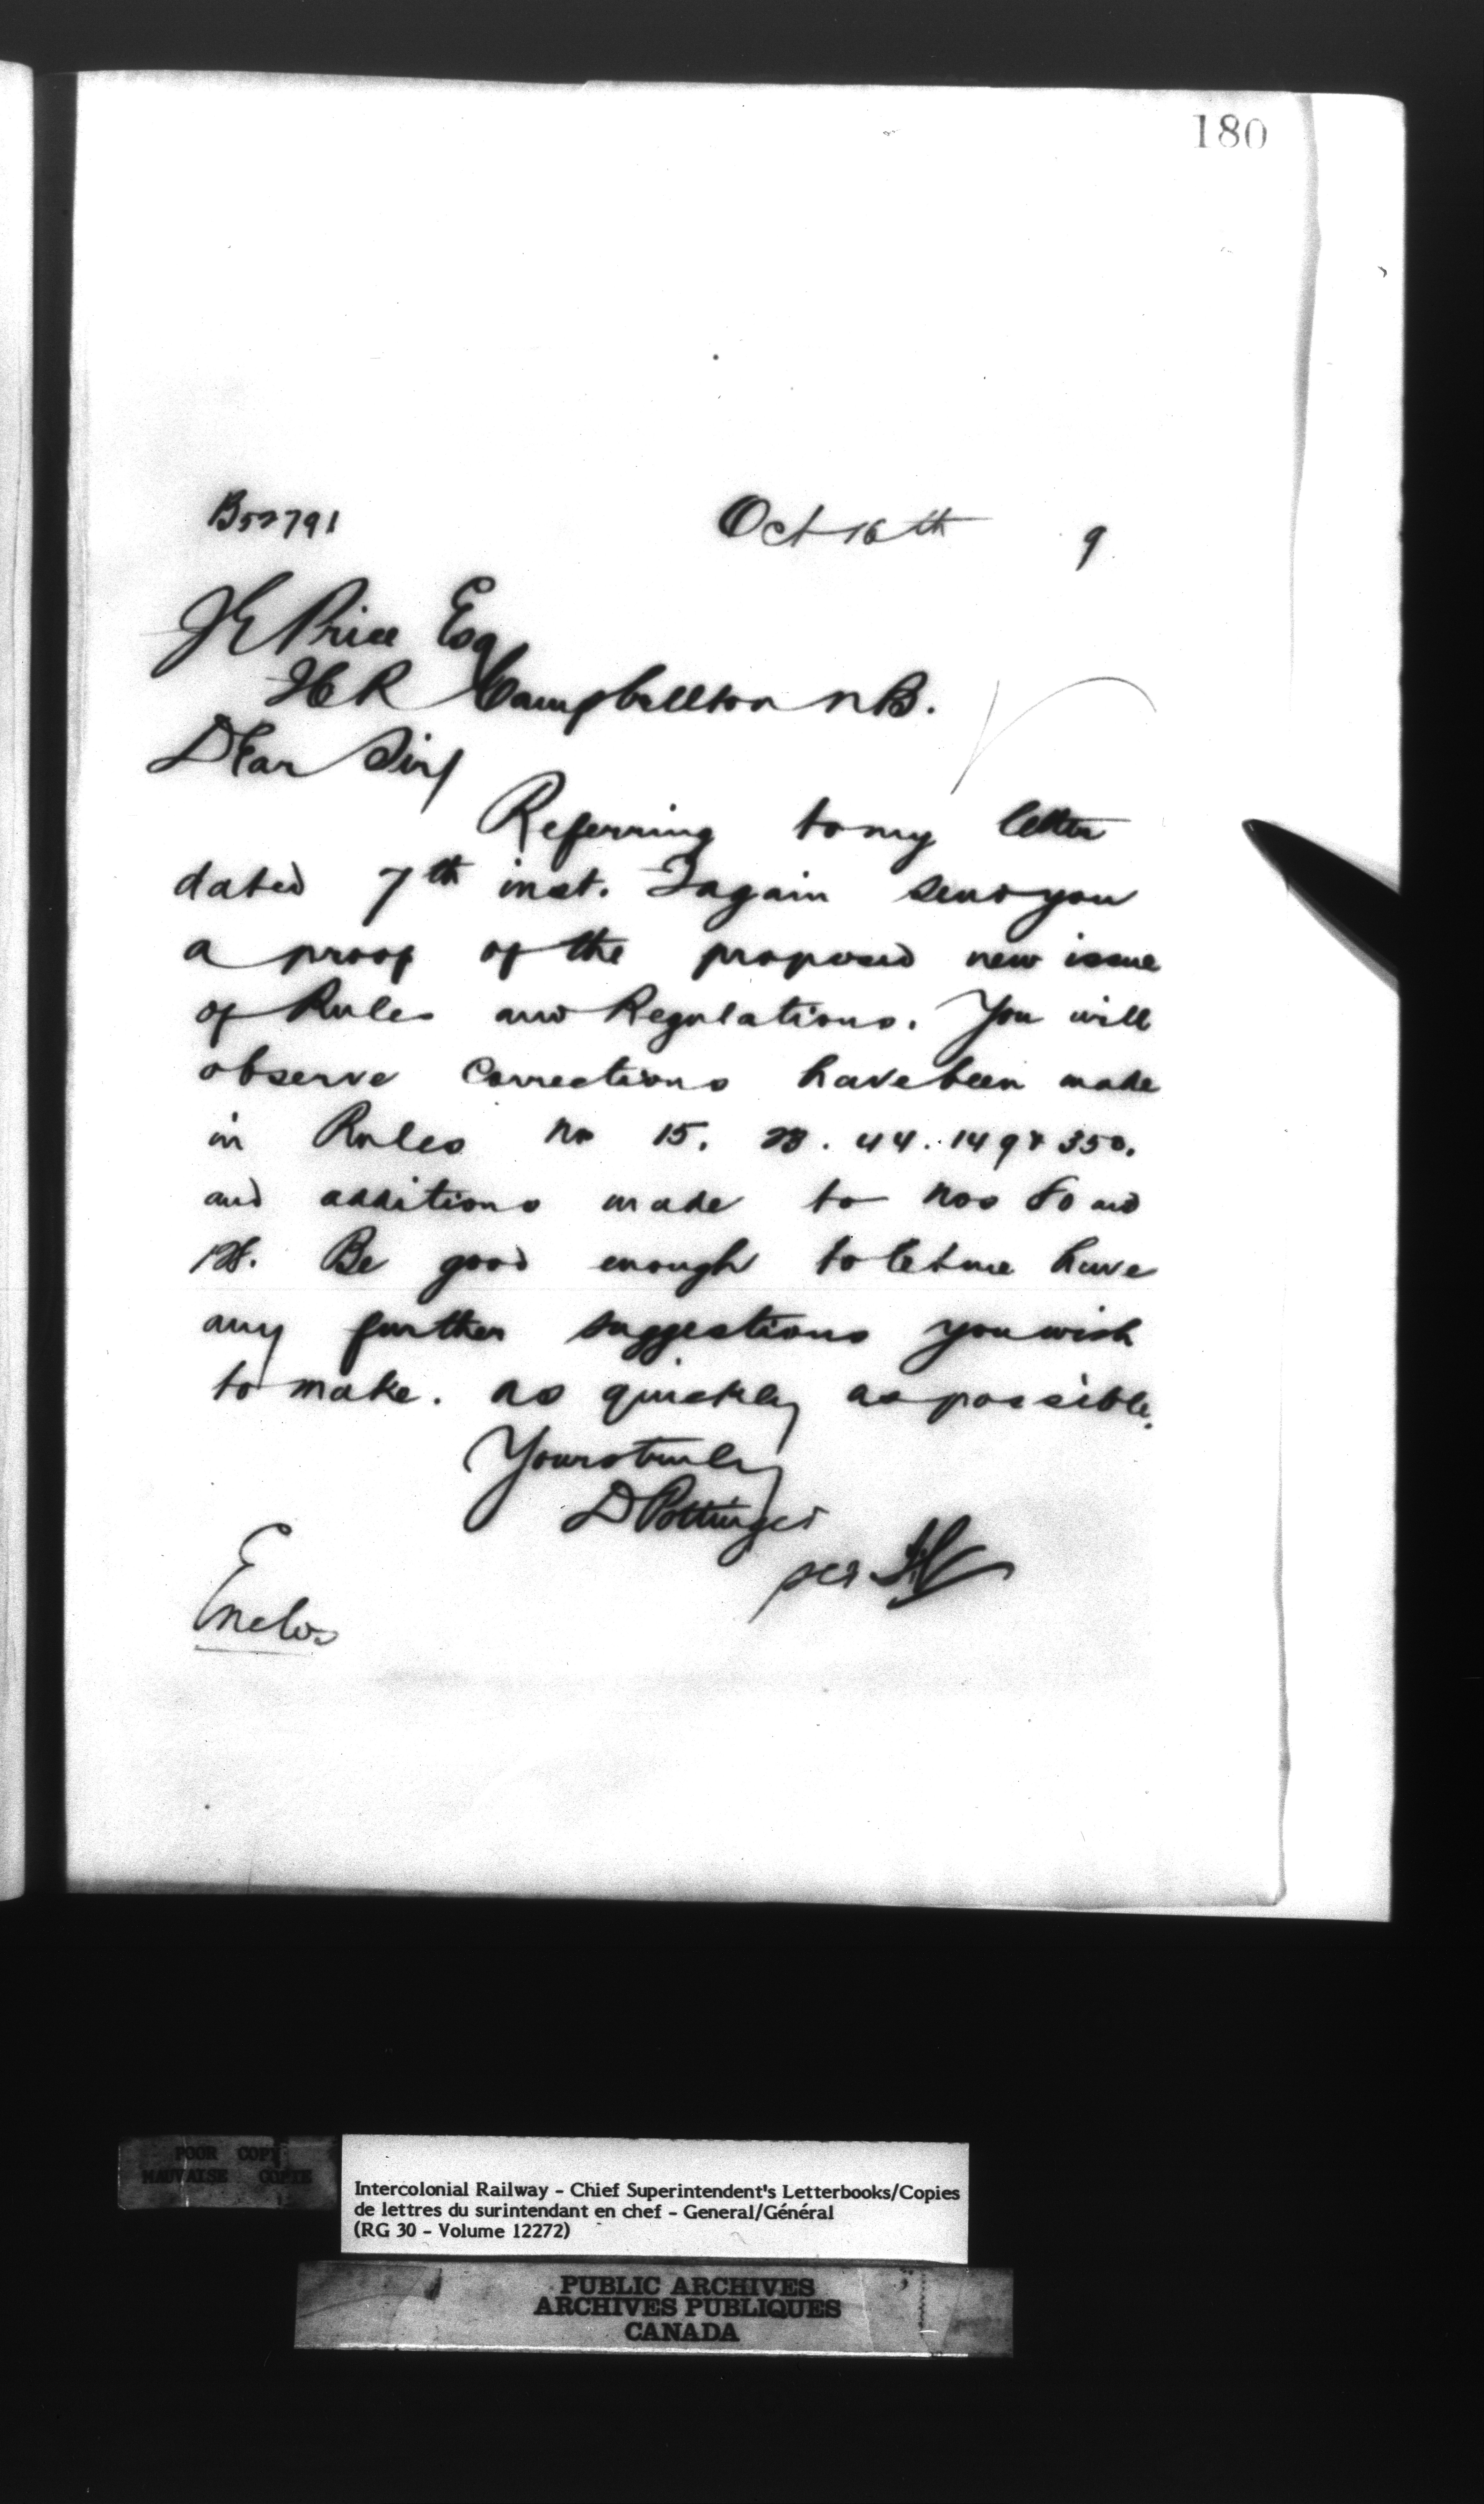 180
B52791
Oct 16th 9
J E Price Esq
I C R Campbellton N B.
Dear Sir/
Referring to my letter
dated 7th inst. I again send you
a proof of the proposed new issue
of Rules and Regulations. You will
observe corrections have been made
in Rules No 15. 23. 44. 149 & 350.
and additions made to Nos 80 and
Be good enough to let me have
any further suggestions you wish
to make. as quickly as possible.
Yours truly
D Pottinger
per
Enclo
POOR COPY
MAUVAISE COPIE
Intercolonial Railway - Chief Superintendent's Letterbooks/Copies
de lettres du surintendant en chef - General/Général
(RG 30 - Volume 12272)
PUBLIC ARCHIVES
ARCHIVES PUBLIQUES
CANADA